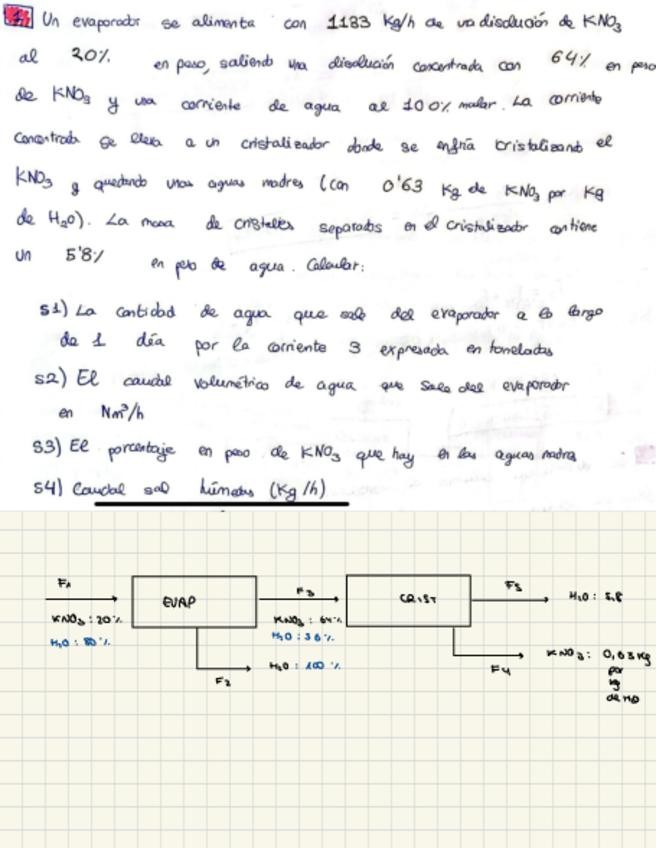 1. Un evaporador se alimenta con 1183 Kg/h de una disolución de KNO3
al 20% en peso, saliendo una disolución concentrada con 64% en peso
de KNO3 y una corriente de agua al 100% molar. La corriente
concentrada se lleva a un cristalizador donde se enfría cristalizando el
KNO3 y quedando unas aguas madres (con 0'63 Kg de KNO3 por Kg
de H2O). La masa de cristales separados en el cristalizador contiene
un 5'8% en peso de agua. Calcular:
S1) La cantidad de agua que sale del evaporador a lo largo
de 1 día por la corriente 3 expresada en toneladas
S2) El caudal volumétrico de agua que sale del evaporador
en Nm³/h
S3) El porcentaje en peso de KNO3 que hay en las aguas madres
S4) Caudal sal húmedas (Kg/h)
F1
EVAP
F3
CRIST
F5
H2O: 5.8
KNO3: 20%
H2O: 80%
KNO3: 64%
H2O: 36%
H2O: 100%
F2
F4
KNO3: 0,63 Kg
por
kg
de H2O